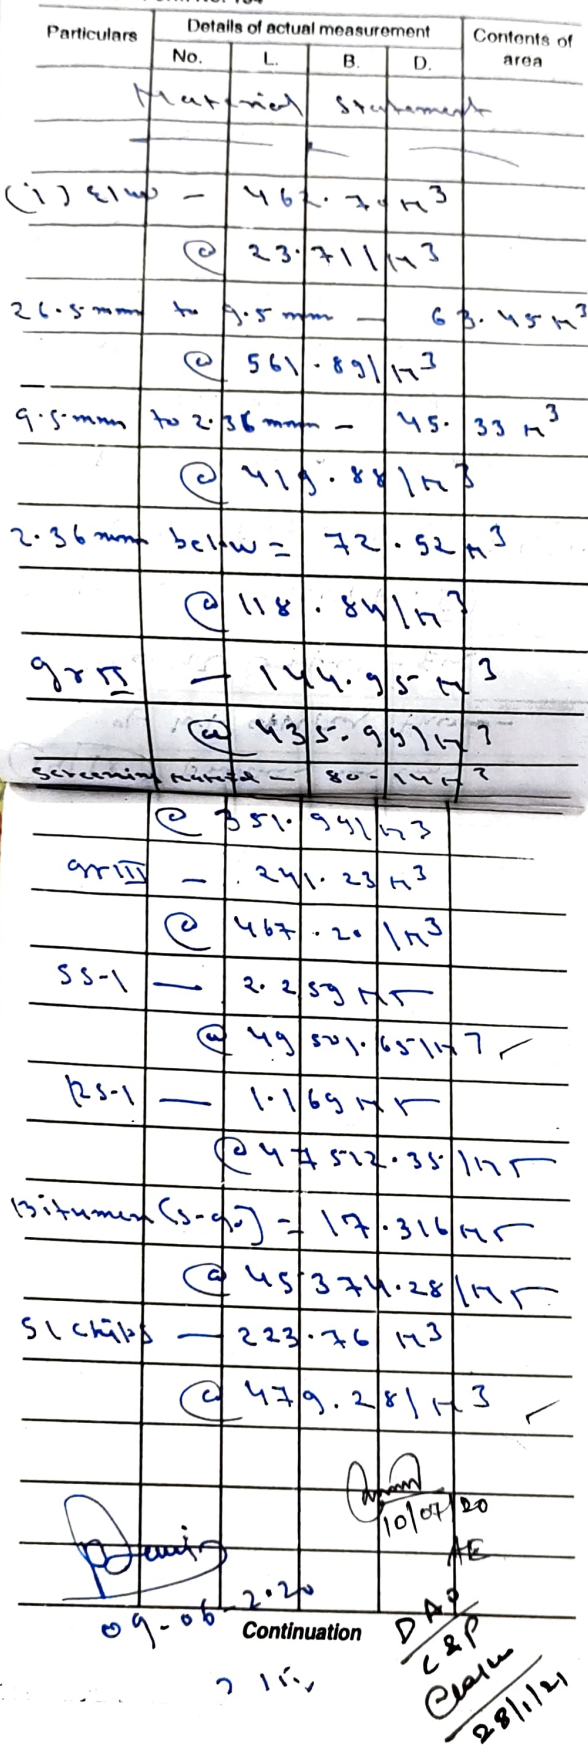 Particulars Details of actual measurement Contents of area
No. L. B. D.
Material Statement
(i) E/W - 462.70 M3
@ 23.71/M3
26.5mm to 9.5mm - 63.45 M3
@ 561.89/M3
9.5mm to 2.36mm - 45.33 M3
@ 419.88/M3
2.36mm below = 72.52 M3
@ 118.84/M3
gr II - 144.95 M3
@ 435.99/M3
Screening - 80.14 M3
@ 351.94/M3
gr III - 241.23 M3
@ 467.20/M3
SS-1 - 2.259 MT
@ 49501.65/MT
RS-1 - 1.169 MT
@ 47512.35/MT
Bitumen (S-90) = 17.316 MT
@ 45374.28/MT
St Chips - 223.76 M3
@ 479.28/M3
10/07/20
AE
09-06-2020
Continuation
DAO
C&P
28/1/21